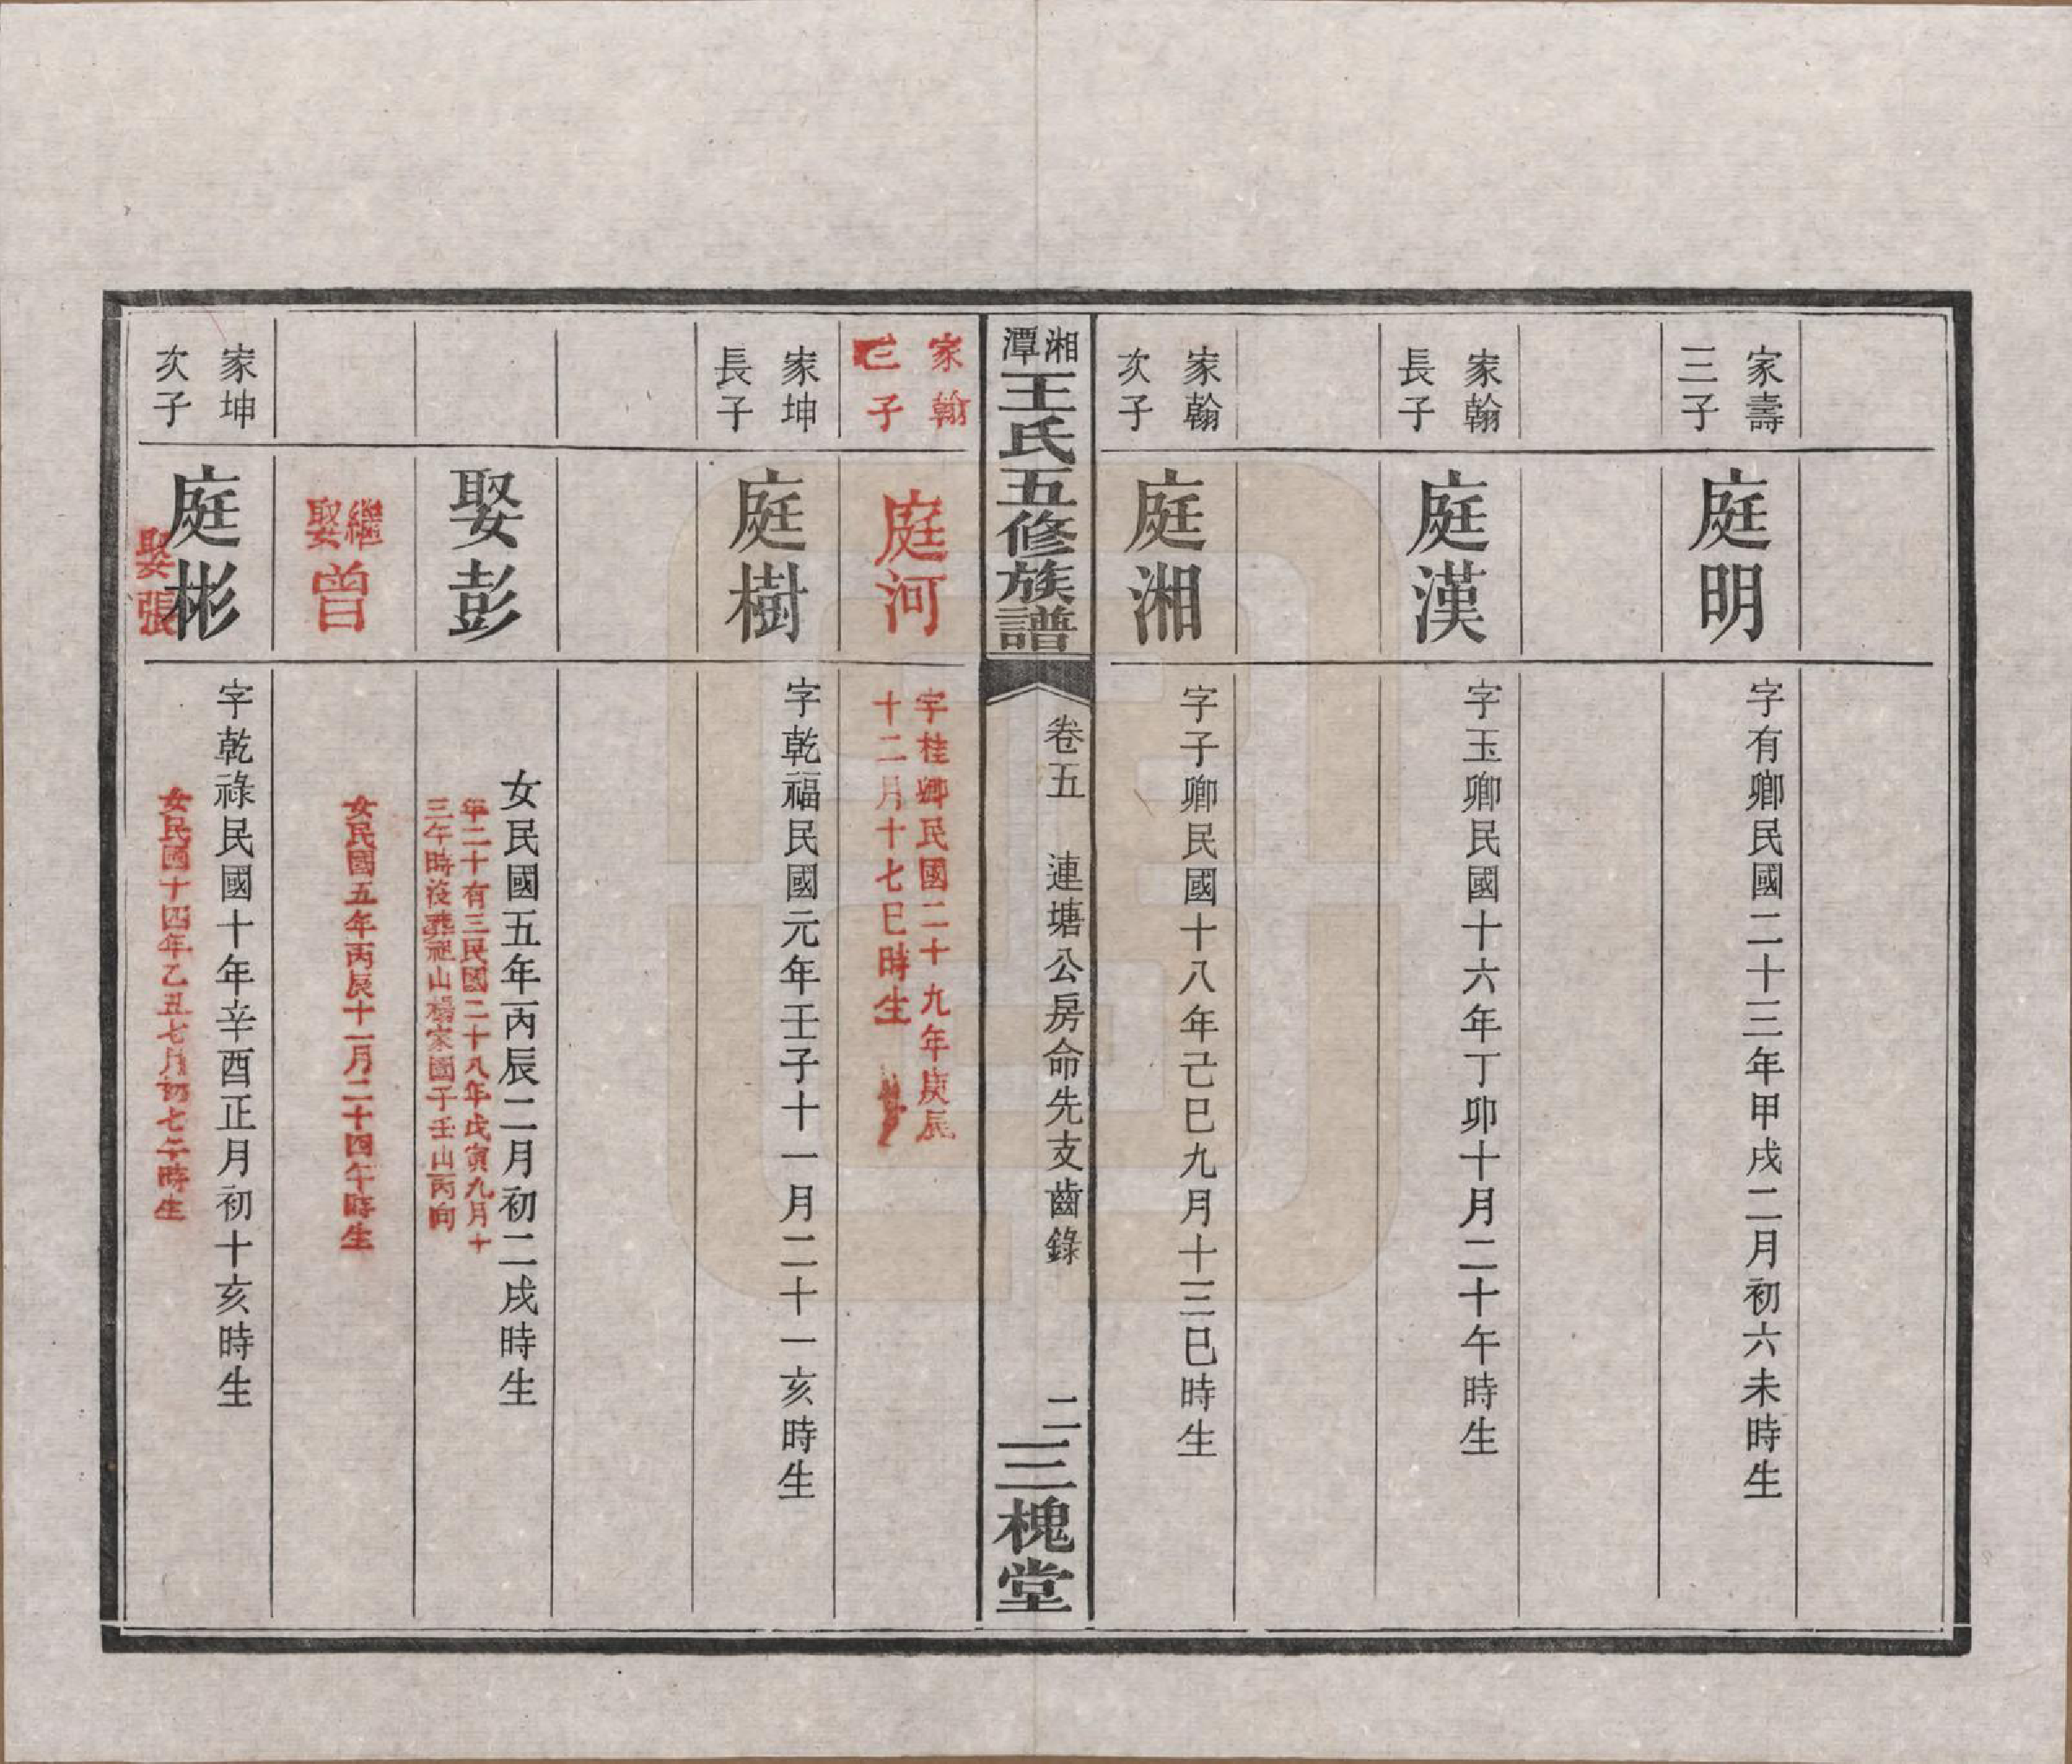 家壽
三子
庭明
字有卿民國二十三年甲戌二月初六未時生
家翰
長子
庭漢
字玉卿民國十六年丁卯十月二十午時生
家翰
次子
庭湘
字子卿民國十八年己巳九月十三巳時生
湘潭王氏五修族譜
卷五　連塘公房命先支齒錄
二
三槐堂
家翰
三子
庭河
字桂卿民國二十九年庚辰
十二月十七巳時生
家坤
長子
庭樹
字乾福民國元年壬子十一月二十一亥時生
娶彭
女民國五年丙辰二月初二戌時生
年二十有三民國二十八年戊寅九月十
三午時沒葬祖山楊家園子壬山丙向
繼娶曾
女民國五年丙辰十一月二十四午時生
家坤
次子
庭彬
字乾祿民國十年辛酉正月初十亥時生
娶張
女民國十四年乙丑七月初七午時生